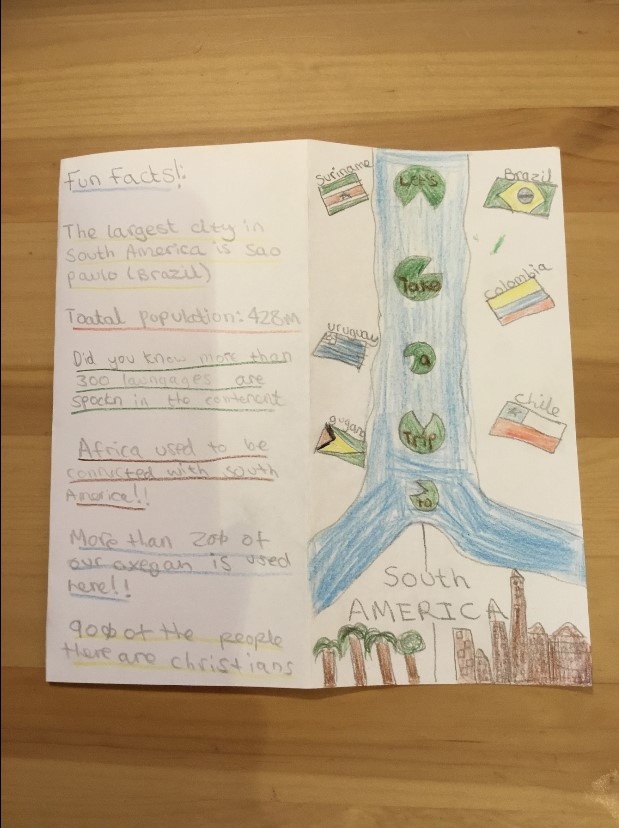 Fun Facts!:
The largest city in
South America is sao
paulo (Brazil)
Toatal population: 428m
Did you know more than
300 laungages are
spoctn in the contenent
Africa used to be
conructed with south
America!!
More than 20% of
our oxegan is used
here!!
90% of the people
there are christians
Suriname
Brazil
Colombia
Uruguay
Chile
guyana
Lets
Take
a
Trip
to
South
AMERICA